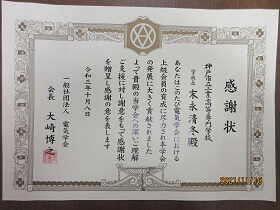 感謝状
神戸市立工業高等専門学校
学校長 末永清冬殿
あなたはこのたび電気学会における
上級会員の育成に尽力され本学会
の発展に大きく貢献されました
よって貴殿の当学会への深いご理解
ご支援に対し謝意をもって感謝状
を贈呈し感謝の意を表します
令和三年十月八日
一般社団法人 電気学会
会長 大崎博之